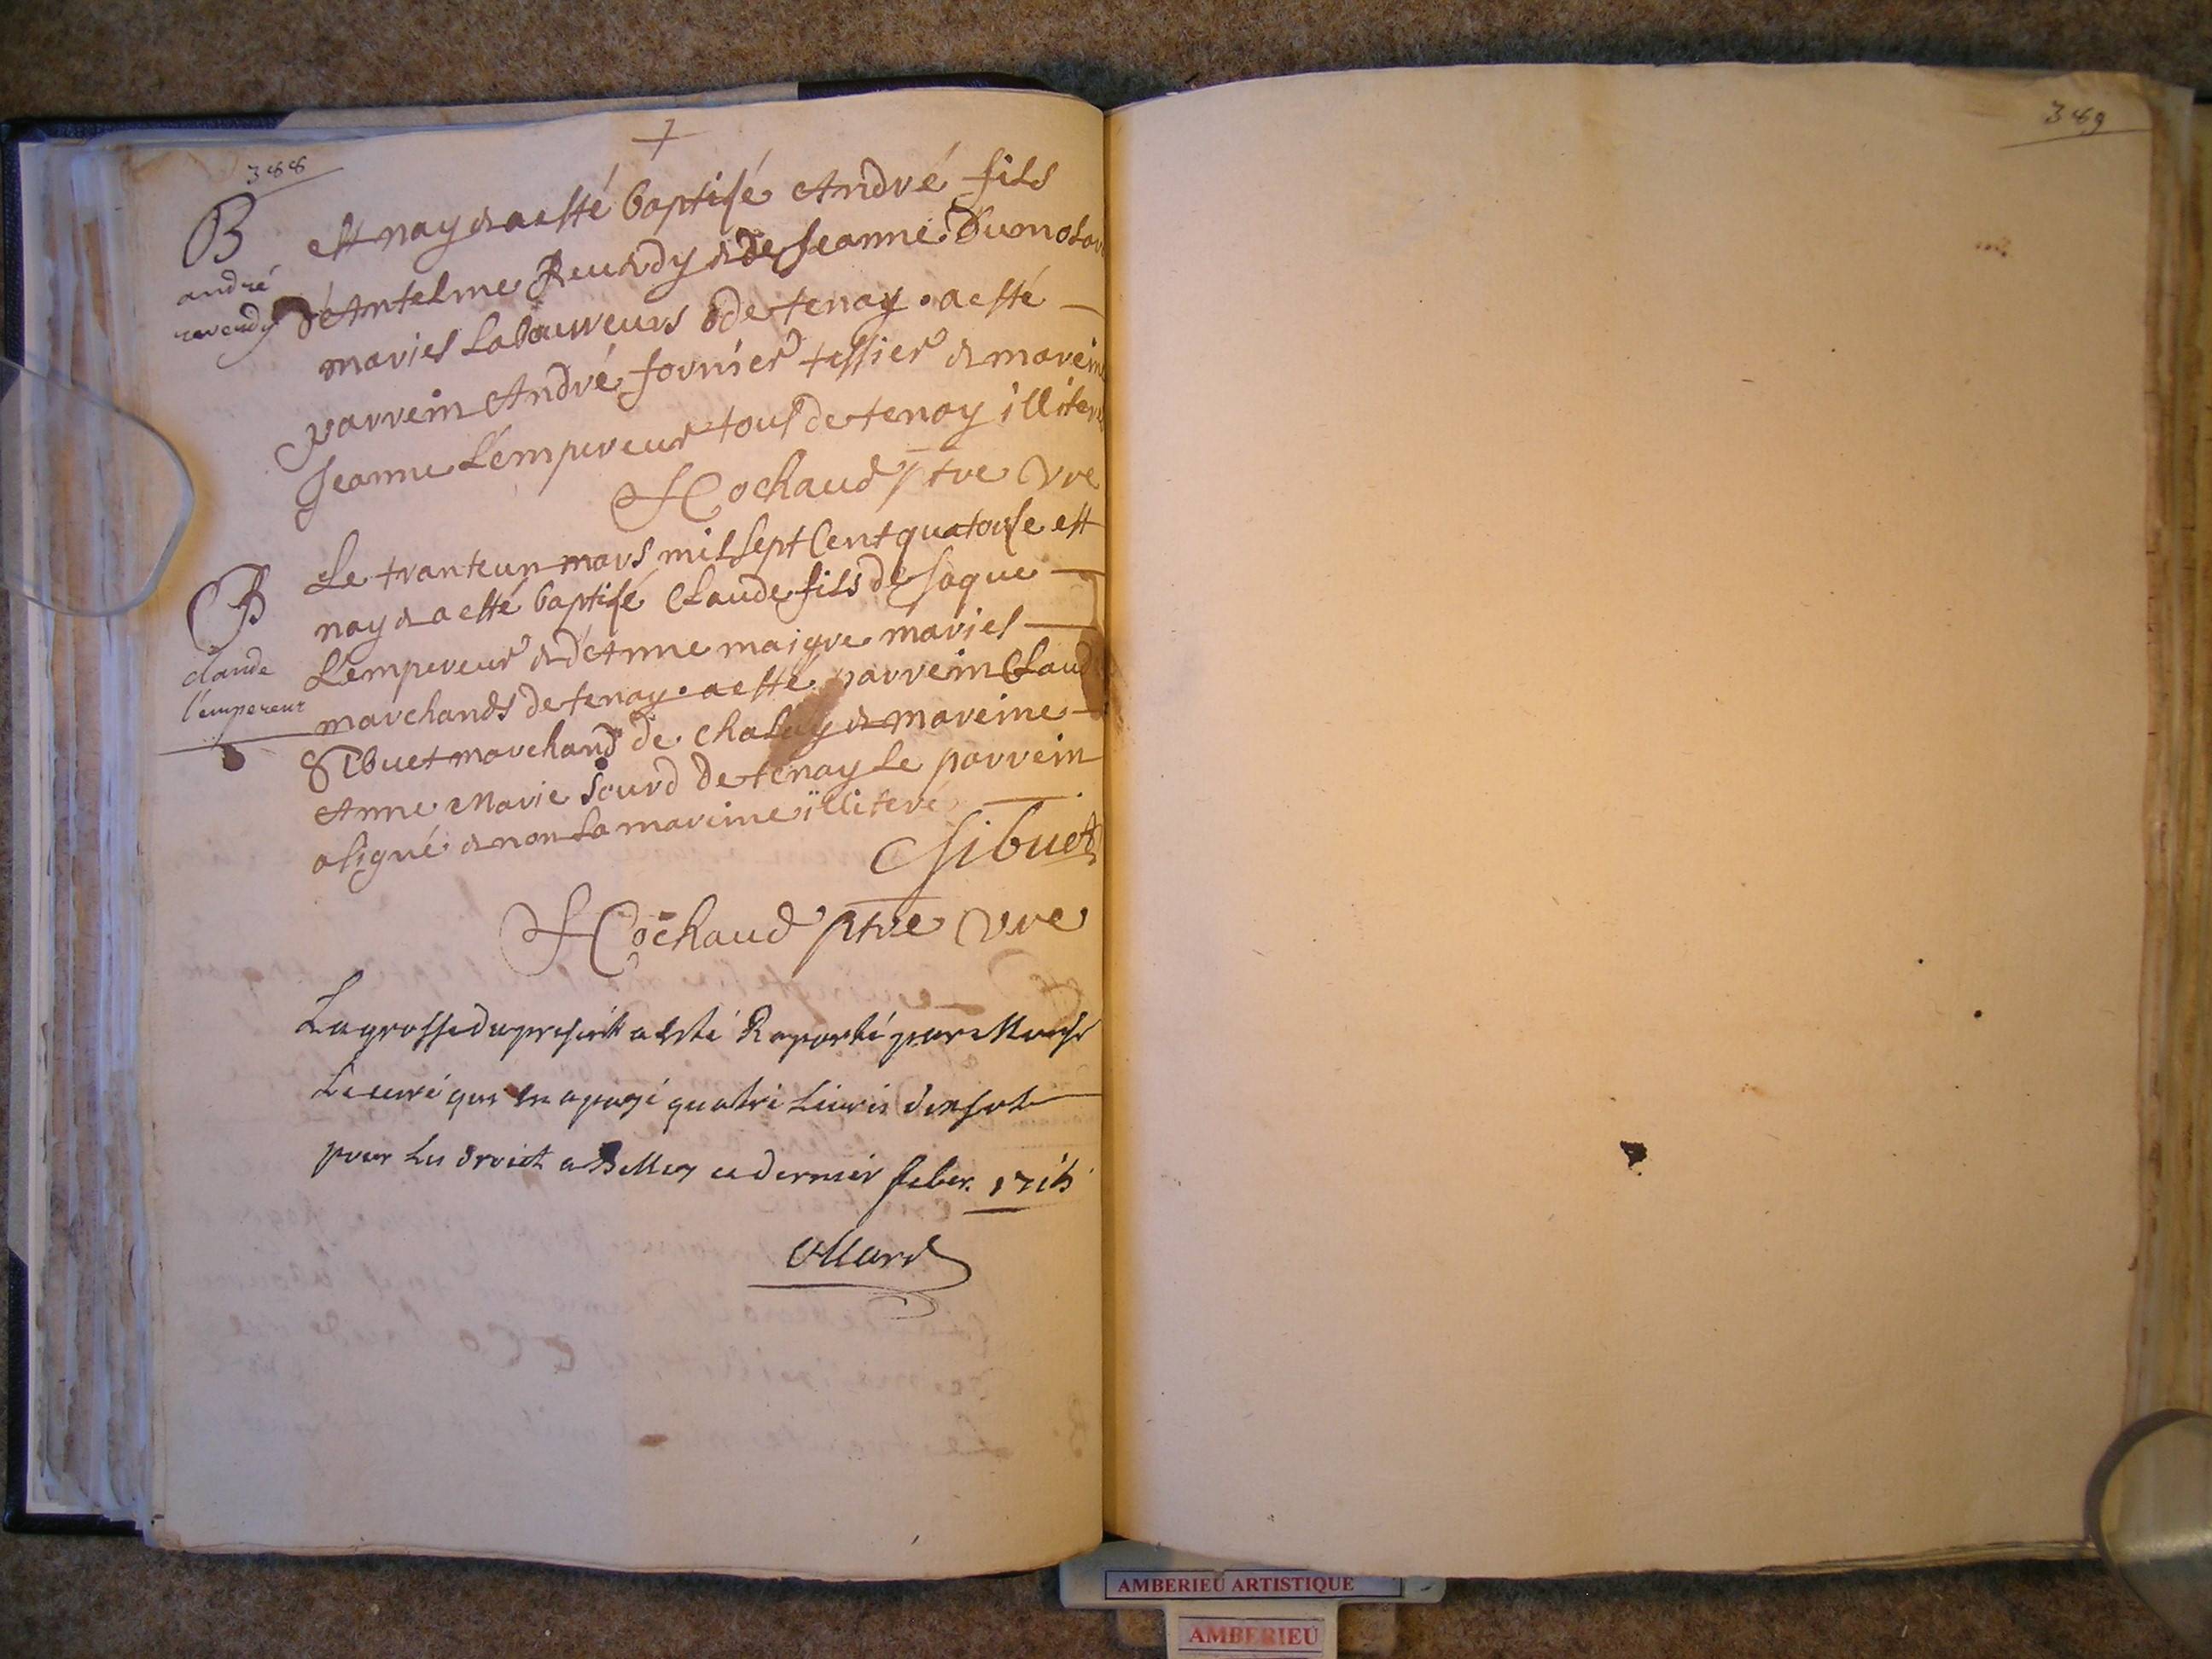 388
+
B
andré
reverdy
est nay & a esté baptisé André fils
d'Antelme Reverdy & de Jeanne Dumolar
mariés Laboureurs de tenay. a esté
parrein André fornier tissier & mareine
Jeanne L'empereur tous de tenay illiteres
Cochaud ptre Vre
B
claude
l'empereur
Le tranteun mars mil sept Cent quatorse est
nay & a esté baptisé Claude fils de Jaque
L'empereur & d'Anne maigre mariés
marchands de tenay. a esté parrein Claude
Sibuet marchand de chaley & mareine
Anne Marie Sourd de tenay Le parrein
a signé & non La mareine illiteré
C Sibuet
Cochaud ptre Vre
La grosse du present a esté Raporté par Monsr
Le curé qui en a payé quatre Livres dix sols
pour Les droict a Belley ce dernier feber. 1715
389
AMBERIEU ARTISTIQUE
AMBERIEU